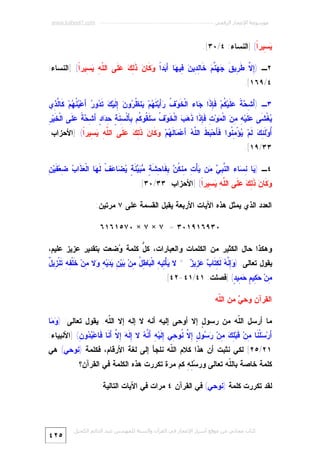 www.kaheel7.com
موسوعة الإعجاز الرقمي
يَسِيراً) [النساء: ٣٠/٤].
٢ــ (إِلَّا طَرِيقَ جَهَنَّمَ خَالِدِينَ فِيهَا أَبَداً وَكَانَ ذَلِكَ عَلَى اللَّهِ يَسِيراً) [النساء:
١٦٩/٤].
٣ــ (أَشِحَّةً عَلَيْكُمْ فَإِذَا جَاءَ الْخَوْفُ رَأَيْتَهُمْ يَنْظُرُونَ إِلَيْكَ تَدُورُ أَعْيُنُهُمْ كَالَّذِي
يُغْشَى عَلَيْهِ مِنَ الْمَوْتِ فَإِذَا ذَهَبَ الْخَوْفُ سَلَقُوكُمْ بِأَلْسِنَةٍ حِدَادٍ أَشِحَّةً عَلَى الْخَيْرِ
أُولَئِكَ لَمْ يُؤْمِنُوا فَأَحْبَطَ اللَّهُ أَعْمَالَهُمْ وَكَانَ ذَلِكَ عَلَى اللَّهِ يَسِيراً) [الأحزاب:
١٩/٣٣].
٤ــ (يَا نِسَاءَ النَّبِيِّ مَنْ يَأْتِ مِنْكُنَّ بِفَاحِشَةٍ مُبَيِّنَةٍ يُضَاعَفْ لَهَا الْعَذَابُ ضِعْفَيْنِ
وَكَانَ ذَلِكَ عَلَى اللَّهِ يَسِيراً) [الأحزاب: ٣٠/٣٣].
العدد الذي يمثل هذه الآيات الأربعة يقبل القسمة على ٧ مرتين:
٣٠١٩١٦٩٣٠ = ٧ × ٧ × ٦١٦١٥٧٠
وهكذا حال الكثير من الكلمات والعبارات، كلُّ كلمة وُضعت بتقدير عزيز عليم،
يقول تعالى: (وَإِنَّهُ لَكِتَابٌ عَزِيزٌ * لا يَأْتِيهِ الْبَاطِلُ مِنْ بَيْنِ يَدَيْهِ وَلا مِنْ خَلْفِهِ تَنْزِيلٌ
مِنْ حَكِيمٍ حَمِيدٍ) [فصلت: ٤١/٤١-٤٢].
القرآن وحيٌ من اللّه
ما أرسل اللّه من رسول إلا أوحى إليه أنه لا إله إلا اللّه. يقول تعالى: (وَمَا
أَرْسَلْنَا مِنْ قَبْلِكَ مِنْ رَسُولٍ إِلَّا نُوحِي إِلَيْهِ أَنَّهُ لا إِلَهَ إِلَّا أَنَا فَاعْبُدُونِ) [الأنبياء:
٢٥/٢١]. لكي نثبت أن هذا كلام اللّه نلجأ إلى لغة الأرقام، فكلمة (نوحي) هي
كلمة خاصة باللّه تعالى ورسله. كم مرة تكررت هذه الكلمة في القرآن؟
لقد تكررت كلمة (نوحي) في القرآن ٤ مرات في الآيات التالية:
كتاب مجاني من موقع أسرار الإعجاز في القرآن والسنة للمهندس عبد الدائم الكحيل
٤٢٥